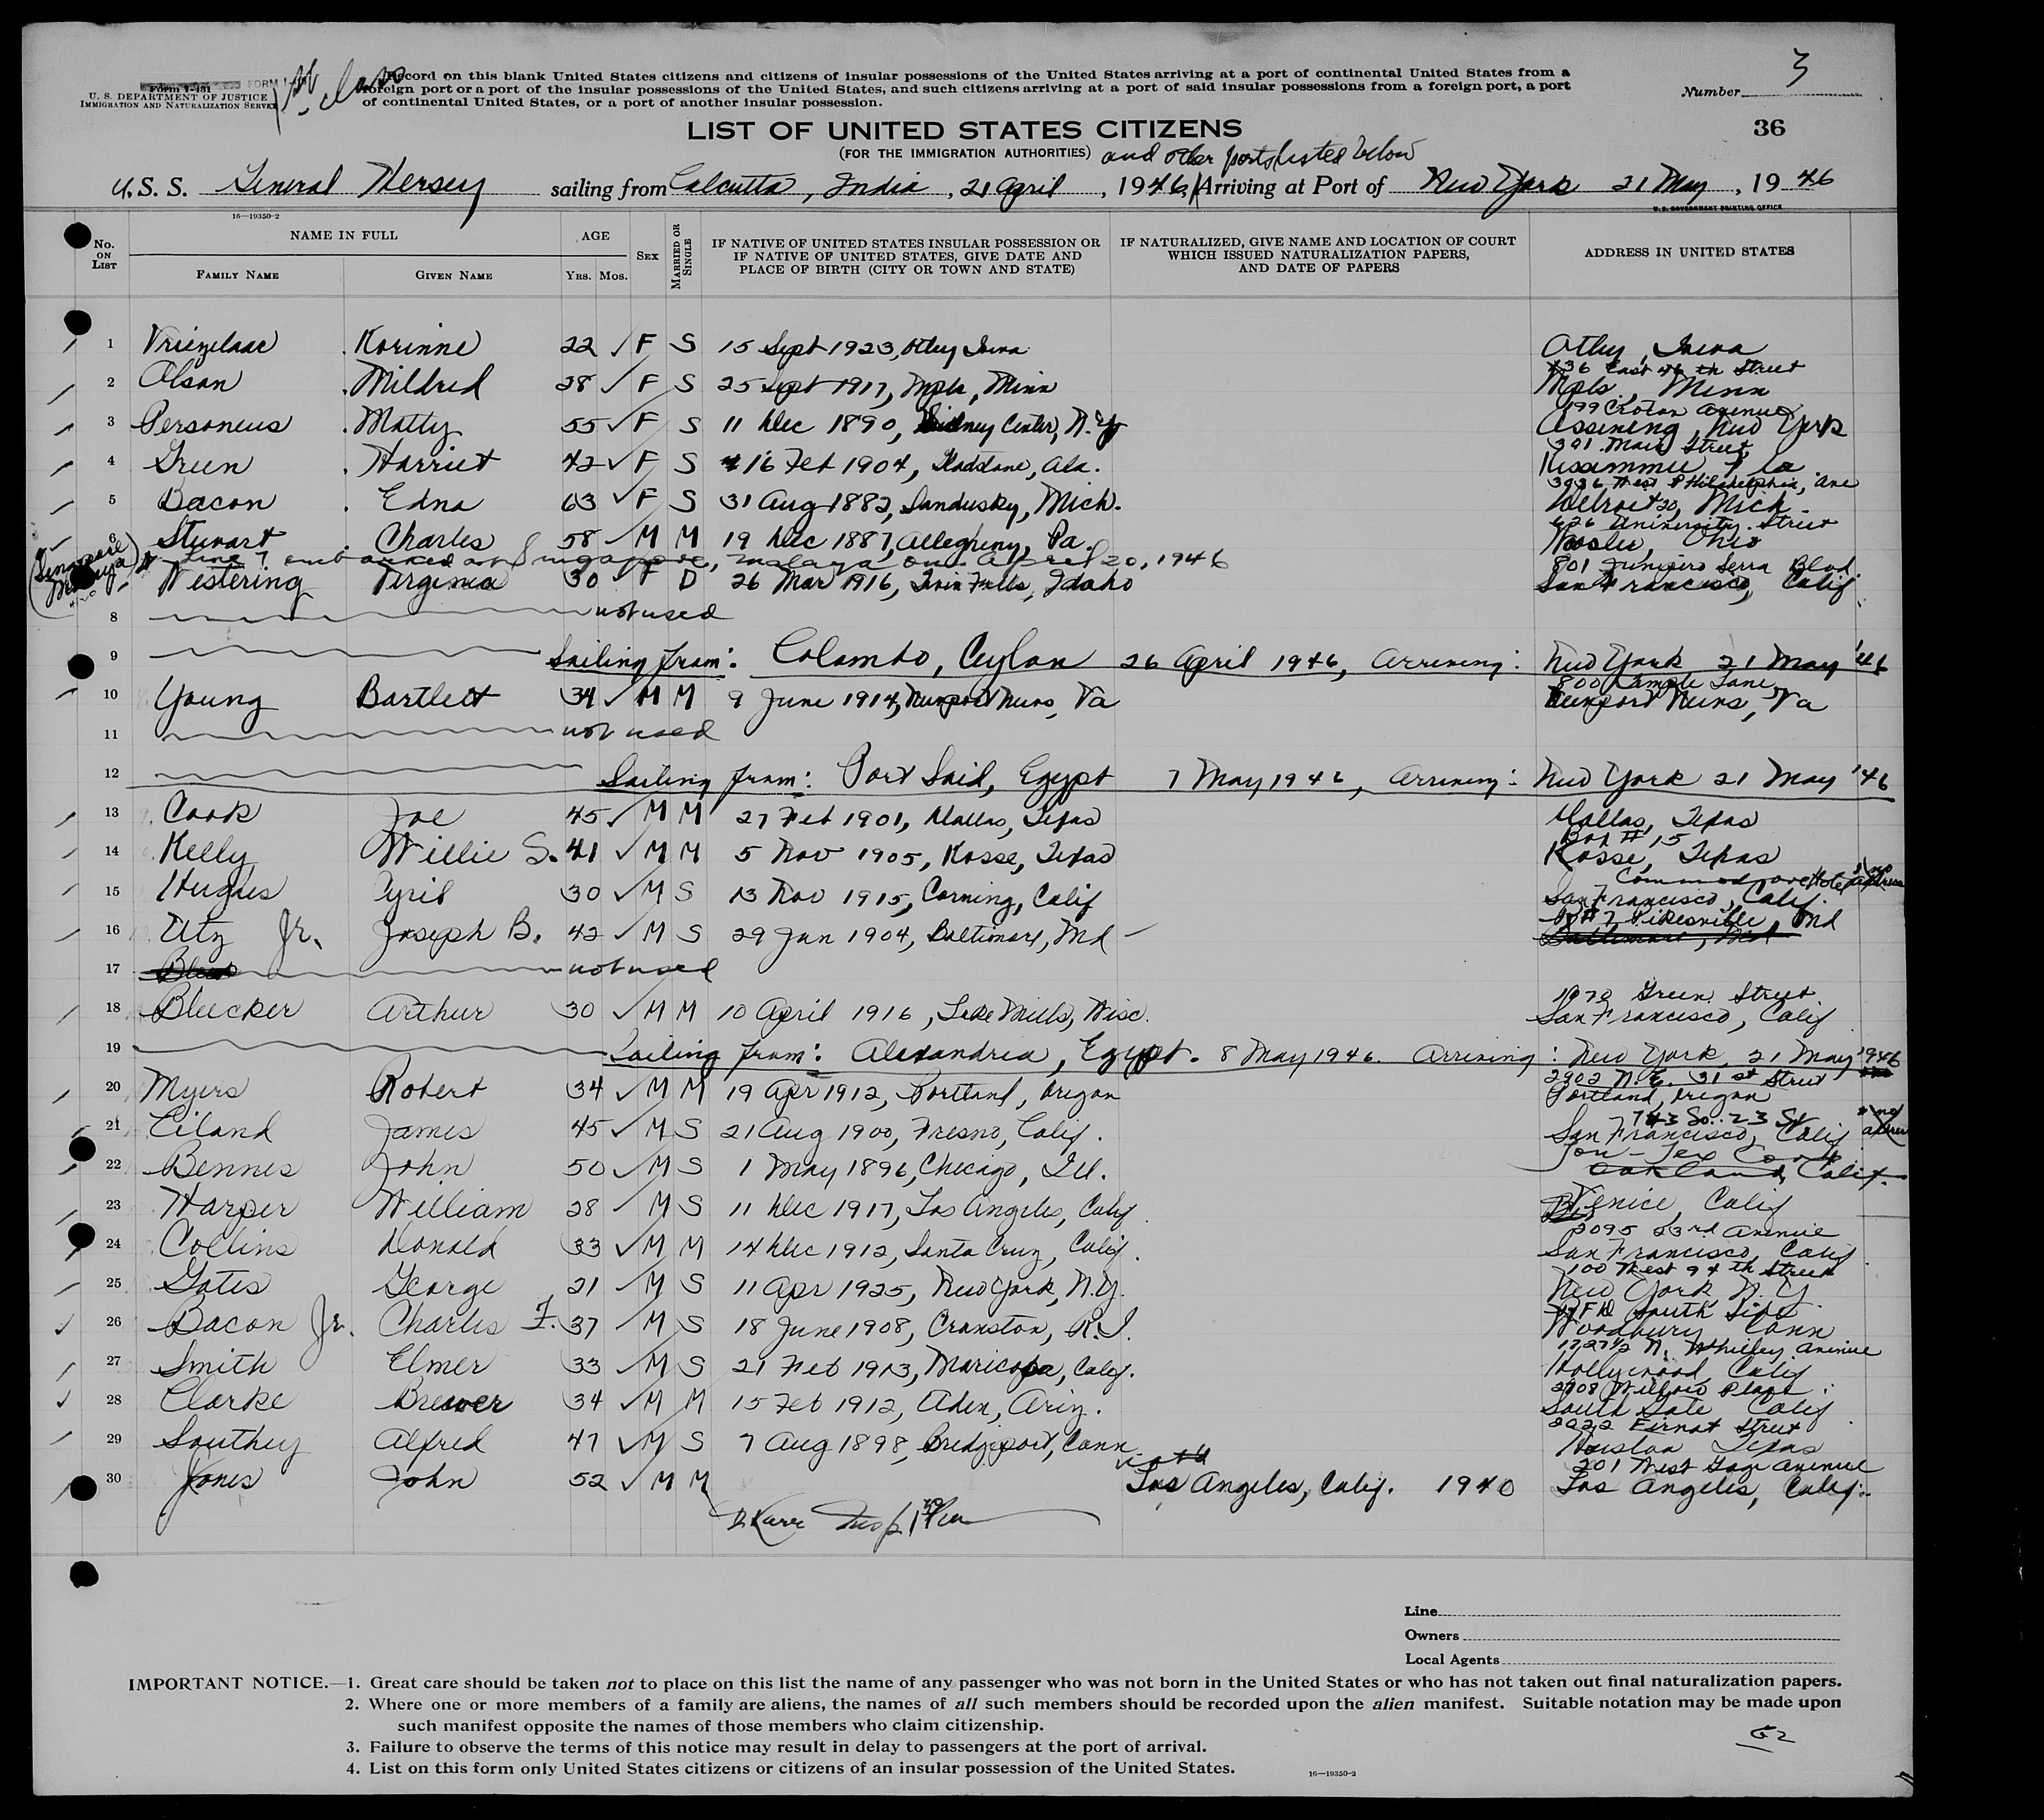 FORM I-
Form I-431
U. S. DEPARTMENT OF JUSTICE
IMMIGRATION AND NATURALIZATION SERVICE
1st Class
Record on this blank United States citizens and citizens of insular possessions of the United States arriving at a port of continental United States from a
foreign port or a port of the insular possessions of the United States, and such citizens arriving at a port of said insular possessions from a foreign port, a port
of continental United States, or a port of another insular possession.
Number 3
36
LIST OF UNITED STATES CITIZENS
(FOR THE IMMIGRATION AUTHORITIES) and other ports listed below
U. S. S. General Hersey sailing from Calcutta, India, 21 April, 1946, Arriving at Port of New York 21 May, 1946
16—19350-2
U. S. GOVERNMENT PRINTING OFFICE
No. ON LIST
NAME IN FULL
FAMILY NAME
GIVEN NAME
AGE
YRS. MOS.
SEX
MARRIED OR SINGLE
IF NATIVE OF UNITED STATES INSULAR POSSESSION OR
IF NATIVE OF UNITED STATES, GIVE DATE AND
PLACE OF BIRTH (CITY OR TOWN AND STATE)
IF NATURALIZED, GIVE NAME AND LOCATION OF COURT
WHICH ISSUED NATURALIZATION PAPERS,
AND DATE OF PAPERS
ADDRESS IN UNITED STATES
1 Korinne 22 ✓ F S 15 Sept 1923, Otley Iowa Otley, Iowa
2 Olson Mildred 28 ✓ F S 25 Sept 1917, Mpls, Minn 436 East 46th Street Mpls, Minn
3 Personeus Matty 55 ✓ F S 11 Dec 1890, Sidney Center, N.Y. 199 Croton Avenue Ossining, New York
4 Green Harriet 42 ✓ F S 16 Feb 1904, Gladstone, Ala. 301 Main Street Kissimmee Fla
5 Bacon Edna 63 ✓ F S 31 Aug 1882, Sandusky, Mich. 3936 West Philadelphia, Ave Detroit 20, Mich.
6 Stewart Charles 58 ✓ M M 19 Dec 1887, Allegheny, Pa. 626 University Street Wooster, Ohio
(Singapore Malaya) Line 7 embarked at Singapore, Malaya on April 20, 1946
Westering Virginia 30 ✓ F D 26 Mar 1916, Twin Falls, Idaho 801 Junipero Serra Blvd. San Francisco, Calif
8 not used
9 Sailing from: Colombo, Ceylon 26 April 1946, Arriving: New York 21 May '46
10 Young Bartlett 34 ✓ M M 9 June 1914, Newport News, Va 800 Temple Lane Newport News, Va
11 not used
12 Sailing from: Port Said, Egypt 7 May 1946, Arriving: New York 21 May '46
13 Cook Joe 45 ✓ M M 27 Feb 1901, Dallas, Texas Dallas, Texas
14 Kelly Willie S. 41 ✓ M M 5 Nov 1905, Kosse, Texas Box #15 Kosse, Texas
15 Hughes Cyril 30 ✓ M S 13 Nov 1915, Corning, Calif Commodore Hotel San Francisco, Calif. no address
16 Utz Jr. Joseph B. 42 ✓ M S 29 Jan 1904, Baltimore, Md – R#7 Pikesville, Md Baltimore, Md
17 not used
18 Bleecker Arthur 30 ✓ M M 10 April 1916, Lake Mills, Wisc. 1970 Green Street San Francisco, Calif
19 Sailing from: Alexandria, Egypt. 8 May 1946. Arriving: New York, 21 May 1946
20 Myers Robert 34 ✓ M M 19 Apr 1912, Portland, Oregon 2902 N.E. 31st Street Portland, Oregon
21 Eiland James 45 ✓ M S 21 Aug 1900, Fresno, Calif. 743 So. 23 St San Francisco, Calif no address
22 Bennes John 50 ✓ M S 1 May 1896, Chicago, Ill. Oakland, Calif.
23 Harper William 28 ✓ M S 11 Dec 1917, Los Angeles, Calif Venice, Calif
24 Collins Donald 33 ✓ M M 14 Dec 1912, Santa Cruz, Calif. 2095 23rd Avenue San Francisco, Calif
25 Gates George 21 ✓ M S 11 Apr 1925, New York, N.Y. 100 West 94th Street New York N.Y.
26 Bacon Jr. Charles F. 37 ✓ M S 18 June 1908, Cranston, R.I. RFD South Side Woodbury Conn
27 Smith Elmer 33 ✓ M S 21 Feb 1913, Maricopa, Calif. 1727½ N. Whitley Avenue Hollywood, Calif
28 Clarke Brewer 34 ✓ M M 15 Feb 1912, Aden, Ariz. 2908 Willow Place South Gate Calif
29 Southey Alfred 47 ✓ M S 7 Aug 1898, Bridgeport, Conn. Street Houston Texas
30 Jones John 52 ✓ M M Los Angeles, Calif. 1940 201 West Gage Avenue Los Angeles, Calif.
Line
Owners
Local Agents
IMPORTANT NOTICE.—1. Great care should be taken not to place on this list the name of any passenger who was not born in the United States or who has not taken out final naturalization papers.
2. Where one or more members of a family are aliens, the names of all such members should be recorded upon the alien manifest. Suitable notation may be made upon
such manifest opposite the names of those members who claim citizenship.
3. Failure to observe the terms of this notice may result in delay to passengers at the port of arrival.
4. List on this form only United States citizens or citizens of an insular possession of the United States.
16—19350-2